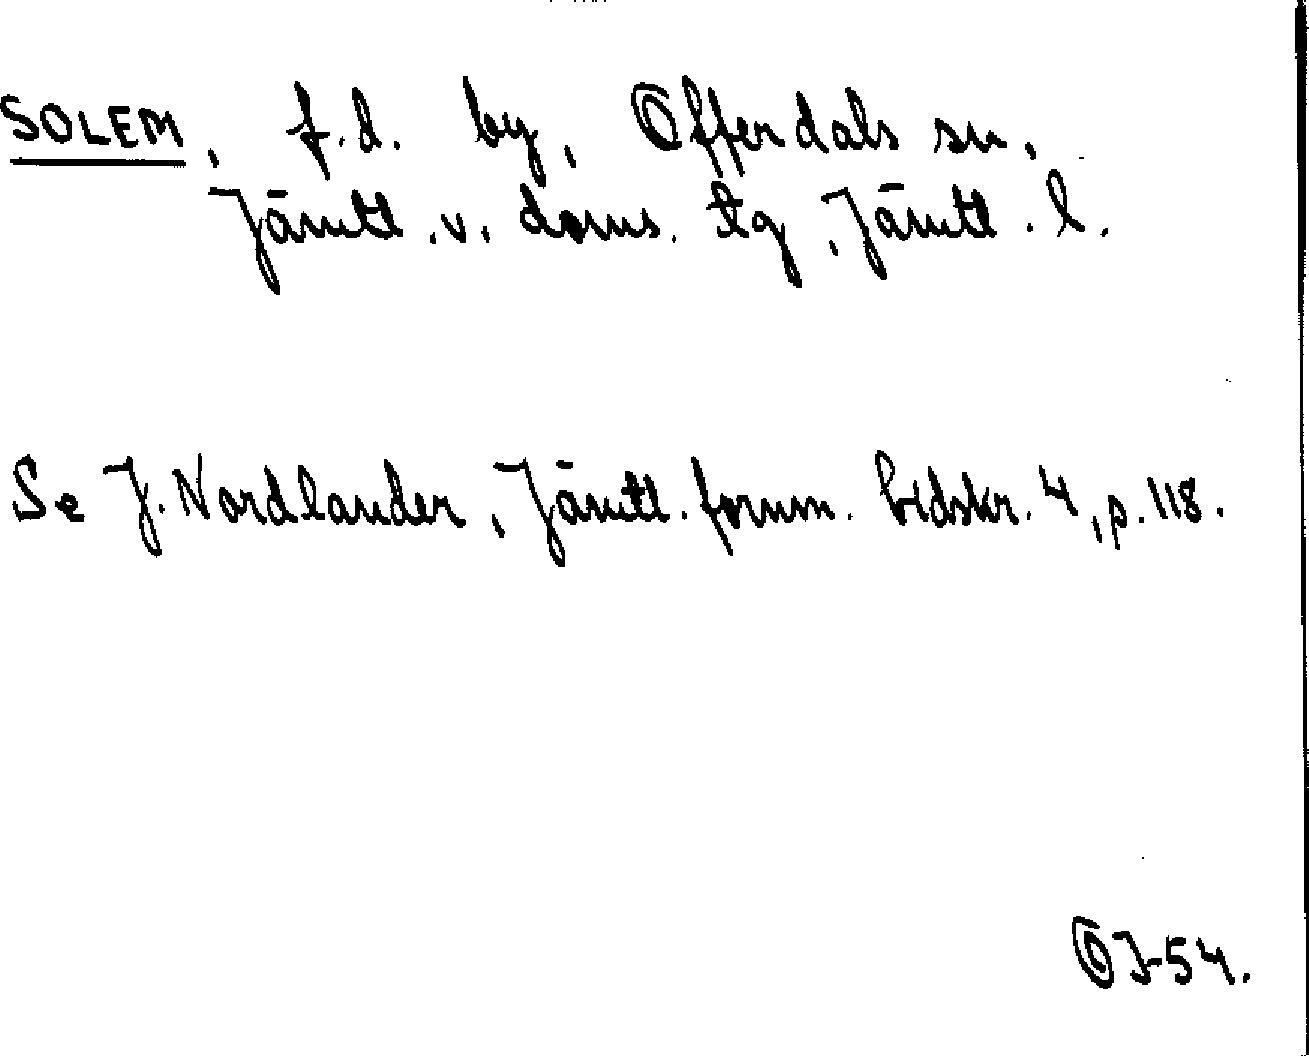 SOLEM, f.d. by, Offerdals sn,
Jämtl. v. doms. tlg, Jämtl. l.
Se J. Nordlander, Jämtl. fornm. tidskr. 4, p. 118.
OJ-54.